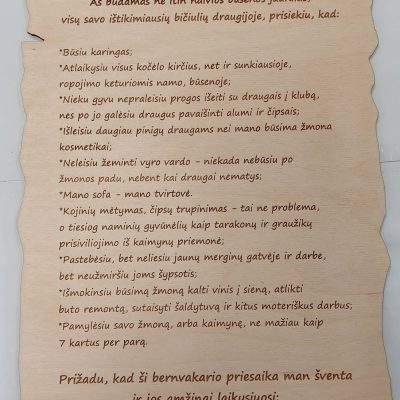 Aš būdamas ne itin naivios būsenos jaunikis,
visų savo ištikimiausių bičiulių draugijoje, prisiekiu, kad:
*Būsiu karingas;
*Atlaikysiu visus kočėlo kirčius, net ir sunkiausioje,
ropojimo keturiomis namo, būsenoje;
*Nieku gyvu nepraleisiu progos išeiti su draugais į klubą,
nes po jo galėsiu draugus pavaišinti alumi ir čipsais;
*Išleisiu daugiau pinigų draugams nei mano būsima žmona
kosmetikai;
*Neleisiu žeminti vyro vardo - niekada nebūsiu po
žmonos padu, nebent kai draugai nematys;
*Mano sofa - mano tvirtovė.
*Kojinių mėtymas, čipsų trupinimas - tai ne problema,
o tiesiog naminių gyvūnėlių kaip tarakonų ir graužikų
prisiviliojimo iš kaimynų priemonė;
*Pastebėsiu, bet neliesiu jaunų merginų gatvėje ir darbe,
bet neužmiršiu joms šypsotis;
*Išmokinsiu būsimą žmoną kalti vinis į sieną, atlikti
buto remontą, sutaisyti šaldytuvą ir kitus moteriškus darbus;
*Pamylėsiu savo žmoną, arba kaimynę, ne mažiau kaip
7 kartus per parą.
Prižadu, kad ši bernvakario priesaika man šventa
ir jos amžinai laikysiuosi: